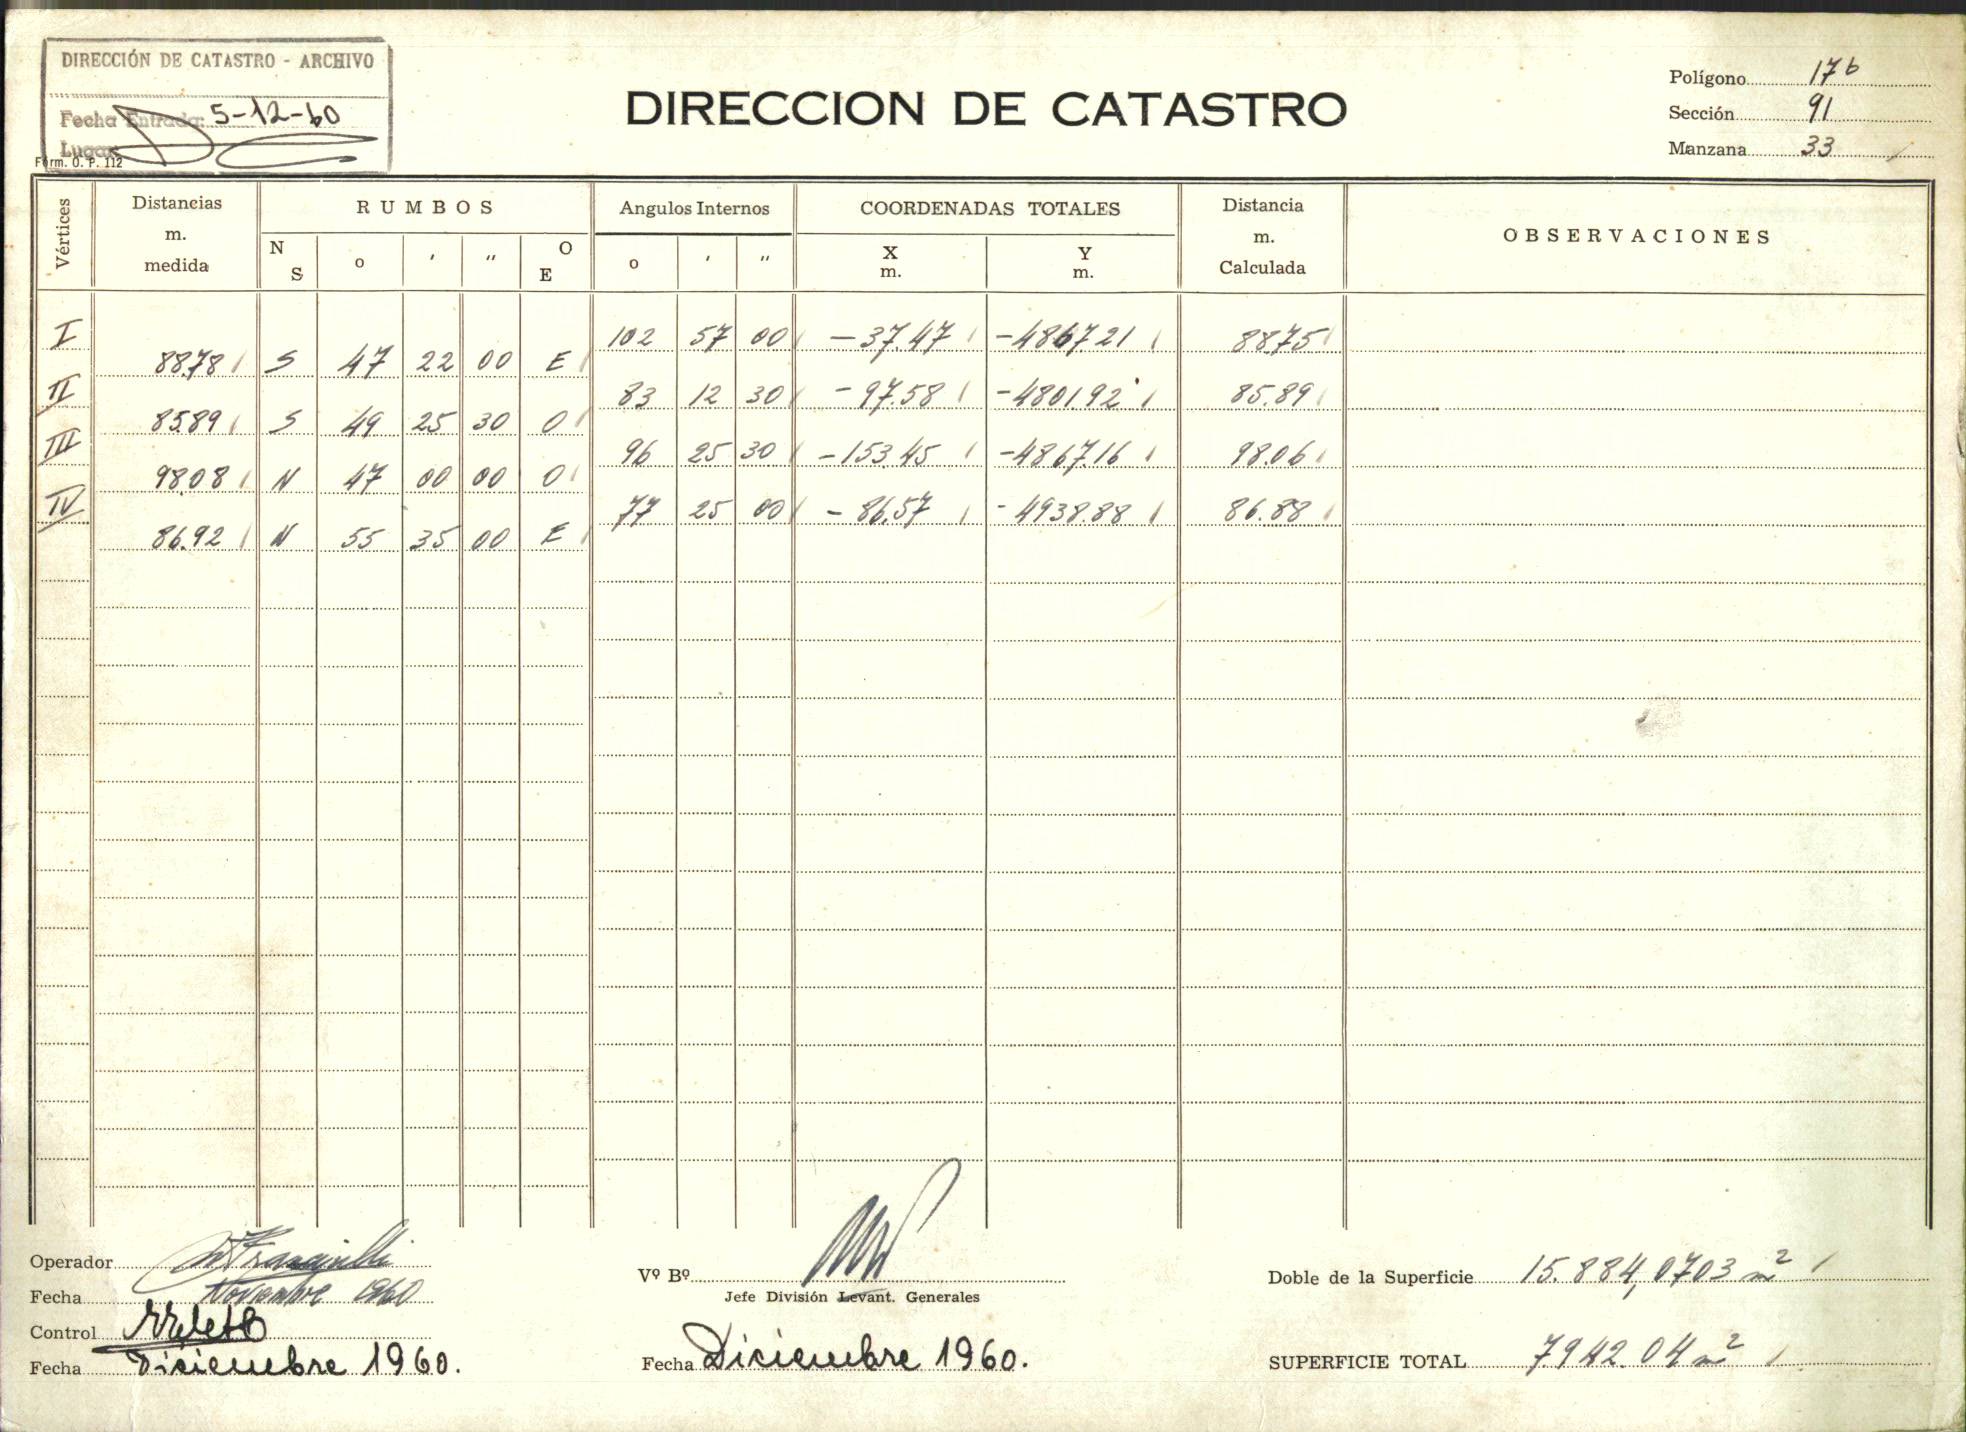 DIRECCIÓN DE CATASTRO - ARCHIVO
Fecha Entrada: 5-12-60
Lugar
Fórm. O. P. 112
DIRECCION DE CATASTRO
Polígono 17b
Sección 91
Manzana 33
Vértices
Distancias m. medida
RUMBOS
N S o ' " O E
Angulos Internos
o ' "
COORDENADAS TOTALES
X m. Y m.
Distancia m. Calculada
OBSERVACIONES
I 102 57 00 -37.47 -4867.21 88.75
88.78 S 47 22 00 E
II 83 12 30 -97.58 -4801.92 85.89
85.89 S 49 25 30 O
III 96 25 30 -153.45 -4867.16 98.06
98.08 N 47 00 00 O
IV 77 25 00 -86.57 -4938.88 86.88
86.92 N 55 35 00 E
Operador
Fecha Noviembre 1960
Control
Fecha Diciembre 1960.
Vº Bº
Jefe División Levant. Generales
Fecha Diciembre 1960.
Doble de la Superficie 15.884,0703 m²
SUPERFICIE TOTAL 7942.04 m²